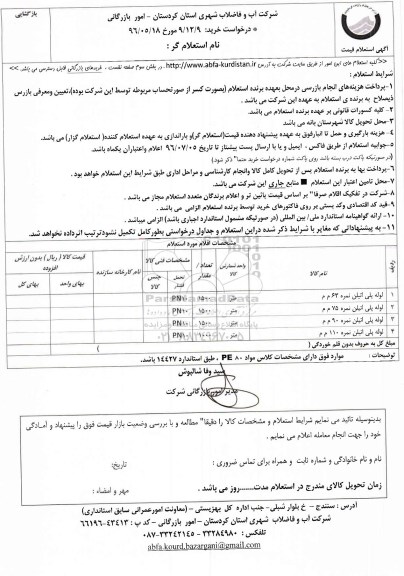 شرکت آب و فاضلاب شهری استان کردستان - امور بازرگانی
بازگشایی
* درخواست خرید: ۹/۱۲/۹ مورخ ۹۶/۰۵/۱۸
نام استعلام گر :
آگهی استعلام قیمت
>>کلیه استعلام های این امور از طریق سایت شرکت به آدرس http://www.abfa-kurdistan.ir، در بخش سوم صفحه نخست ، خریدهای بازرگانی قابل دسترس می باشد. <<
شرایط استعلام :
۱-پرداخت هزینه‌های انجام بازرسی درمحل بعهده برنده استعلام (بصورت کسر از صورتحساب مربوطه توسط این شرکت بوده)،تعیین ومعرفی بازرس
ذیصلاح به برنده ی استعلام به عهده این شرکت می باشد .
۲- کلیه کسورات قانونی بر عهده برنده استعلام می باشد.
۳- محل تحویل کالا شهرستان بانه می باشد
۴- هزینه بارگیری و حمل تا انبارفوق به عهده پیشنهاد دهنده قیمت(استعلام گر)و باراندازی به عهده استعلام کننده( استعلام گزار) می باشد.
۵- جوابیه استعلام از طریق فاکس ، ایمیل و یا با ارسال پست پیشتاز تا تاریخ ۹۶/۰۷/۰۵ اعلام واعتباران یکماه باشد.
(در صورتیکه پاکت درب بسته باشد روی پاکت شماره درخواست خرید حتما" ذکر شود)
۶- پرداخت بها به برنده استعلام پس از تحویل کامل کالا وانجام کارشناسی و مراحل اداری طبق شرایط این استعلام خواهد بود.
۷-محل تامین اعتبار این استعلام ■ منابع جاری این شرکت می باشد.
۸-شرکت در تفکیک اقلام صرفا" بر اساس قیمت پائین تر و اعلام برندگان متعدد استعلام مجاز می باشد .
۹-قید کد اقتصادی وکد پستی بر روی فاکتورهای خرید توسط برنده استعلام الزامی می باشد .
۱۰- ارائه گواهینامه استاندارد ملی/ بین المللی (در صورتیکه مشمول استاندارد اجباری باشد) الزامی میباشد .
۱۱- به پیشنهاداتی که مغایر با شرایط ذکر شده دراین استعلام و جداول درخواستی بطور کامل تکمیل نشودترتیب اثرداده نخواهد شد.
مشخصات اقلام مورد استعلام
ردیف | نام کالا | واحد سنجش کالا | تعداد / مقدار | مشخصات فنی کالا | تحمل فشار | جنس کالا | نام کارخانه سازنده | قیمت کالا ( ریال ) بدون ارزش افزوده | بهای واحد | بهای کل
۱ | لوله پلی اتیلن نمره ۶۳ م م | متر | PN۱۰
۲ | لوله پلی اتیلن نمره ۷۵ م م | متر | ۱۵۰۰ | PN۱۰
۳ | لوله پلی اتیلن نمره ۹۰ م م | متر | ۱۵۰۰ | PN۱۰
۴ | لوله پلی اتیلن نمره ۱۱۰ م م | متر | ۱۰۰۰ | PN۱۰
مبلغ کل به حروف بدون قلم خوردگی ( )
توضیحات : موارد فوق دارای مشخصات کلاس مواد PE ۸۰ ، طبق استاندارد ۱۴۴۲۷ باشد.
سید وفا شالیپوش
مدیر امور بازرگانی شرکت
بدینوسیله تاکید می نمایم شرایط استعلام و مشخصات کالا را دقیقا" مطالعه و با بررسی وضعیت بازار قیمت فوق را پیشنهاد و آمادگی
خود را جهت انجام معامله اعلام می نمایم .
نام و نام خانوادگی و شماره ثابت و همراه برای تماس ضروری : تاریخ:
زمان تحویل کالای مندرج در استعلام مدت.......روز می باشد . مهر و امضاء :
آدرس : سنندج - خ بلوار شبلی- جنب اداره کل بهزیستی - (معاونت امورعمرانی سابق استانداری)
شرکت آب و فاضلاب شهری استان کردستان - امور بازرگانی - کد پ : ۴۳۴۱۳-۶۶۱۹۶
تلفکس : ۳۳۲۸۴۹۸۰ - ۳۳۲۴۲۱۴۵-۰۸۷
abfa.kourd.bazargani@gmail.com